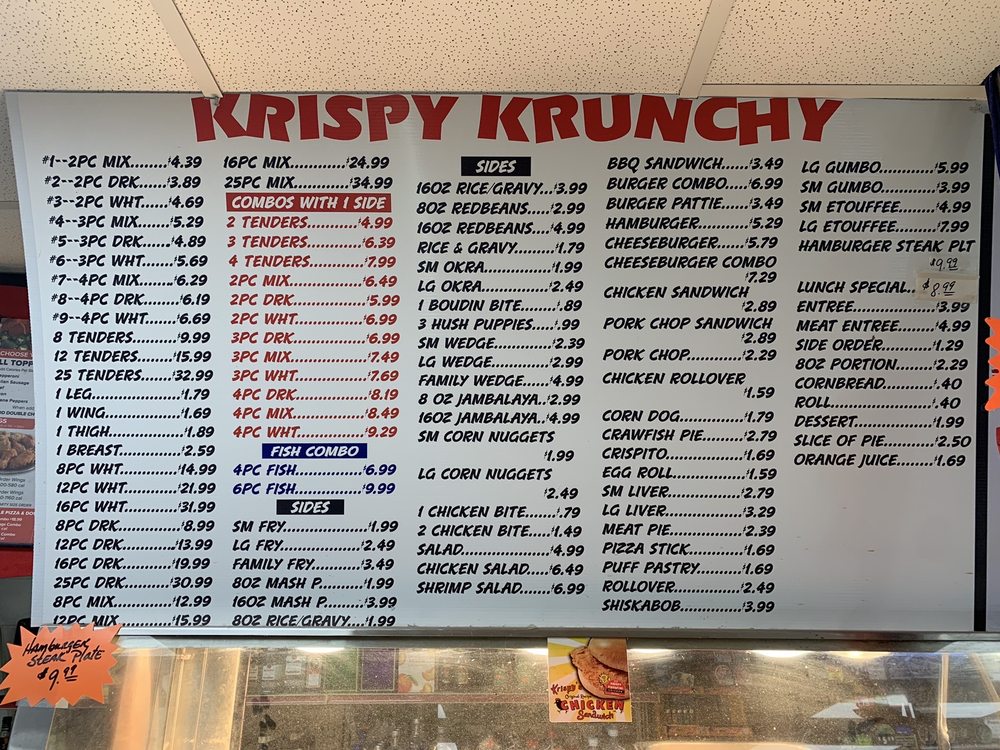 KRISPY KRUNCHY
#1--2PC MIX........$4.39
#2--2PC DRK...$3.89
#3--2PC WHT..$4.69
#4--3PC MIX......$5.29
#5--3PC DRK...$4.89
#6--3PC WHT..$5.69
#7--4PC MIX......$6.29
#8--4PC DRK...$6.19
#9--4PC WHT..$6.69
8 TENDERS.......$9.99
12 TENDERS.....$15.99
25 TENDERS.....$32.99
1 LEG...................$1.79
1 WING...............$1.69
1 THIGH..............$1.89
1 BREAST..........$2.59
8PC WHT..........$14.99
12PC WHT........$21.99
16PC WHT........$31.99
8PC DRK...........$8.99
12PC DRK.........$13.99
16PC DRK.........$19.99
25PC DRK........$30.99
8PC MIX............$12.99
12PC MIX..........$15.99
16PC MIX............$24.99
25PC MIX............$34.99
COMBOS WITH 1 SIDE
2 TENDERS..........$4.99
3 TENDERS..........$6.39
4 TENDERS..........$7.99
2PC MIX................$6.49
2PC DRK.............$5.99
2PC WHT.............$6.99
3PC DRK..............$6.99
3PC MIX...............$7.49
3PC WHT.............$7.69
4PC DRK..............$8.19
4PC MIX...............$8.49
4PC WHT.............$9.29
FISH COMBO
4PC FISH.............$6.99
6PC FISH.............$9.99
SIDES
SM FRY.................$1.99
LG FRY..................$2.49
FAMILY FRY.........$3.49
8OZ MASH P.......$1.99
16OZ MASH P.......$3.99
8OZ RICE/GRAVY...$1.99
SIDES
16OZ RICE/GRAVY...$3.99
8OZ REDBEANS.....$2.99
16OZ REDBEANS...$4.99
RICE & GRAVY......$1.79
SM OKRA...............$1.99
LG OKRA...............$2.49
1 BOUDIN BITE.......$.89
3 HUSH PUPPIES...$.99
SM WEDGE............$2.39
LG WEDGE............$2.99
FAMILY WEDGE....$4.99
8 OZ JAMBALAYA..$2.99
16OZ JAMBALAYA..$4.99
SM CORN NUGGETS
$1.99
LG CORN NUGGETS
$2.49
1 CHICKEN BITE....$.79
2 CHICKEN BITE...$1.49
SALAD...................$4.99
CHICKEN SALAD....$6.49
SHRIMP SALAD......$6.99
BBQ SANDWICH......$3.49
BURGER COMBO...$6.99
BURGER PATTIE....$3.49
HAMBURGER.........$5.29
CHEESEBURGER....$5.79
CHEESEBURGER COMBO
$7.29
CHICKEN SANDWICH
$2.89
PORK CHOP SANDWICH
$2.89
PORK CHOP..........$2.29
CHICKEN ROLLOVER
$1.59
CORN DOG............$1.79
CRAWFISH PIE......$2.79
CRISPITO................$1.69
EGG ROLL.............$1.59
SM LIVER...............$2.79
LG LIVER...............$3.29
MEAT PIE...............$2.39
PIZZA STICK..........$1.69
PUFF PASTRY........$1.69
ROLLOVER.............$2.49
SHISKABOB...........$3.99
LG GUMBO..........$5.99
SM GUMBO..........$3.99
SM ETOUFFEE......$4.99
LG ETOUFFEE......$7.99
HAMBURGER STEAK PLT
$9.99
LUNCH SPECIAL.. $8.99
ENTREE................$3.99
MEAT ENTREE......$4.99
SIDE ORDER.........$1.29
8OZ PORTION.......$2.29
CORNBREAD..........$.40
ROLL......................$.40
DESSERT...............$1.99
SLICE OF PIE.........$2.50
ORANGE JUICE......$1.69
Hamburger
Steak Plate
$9.99
Krispy's
CHICKEN
Sandwich